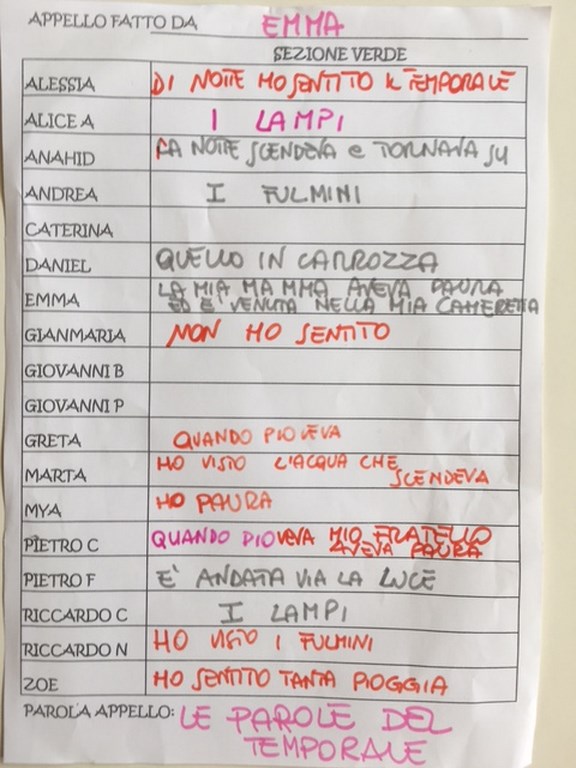 APPELLO FATTO DA EMMA
SEZIONE VERDE
ALESSIA DI NOTTE HO SENTITO IL TEMPORALE
ALICE A I LAMPI
ANAHID LA NOTTE SCENDEVA e TORNAVA SU
ANDREA I FULMINI
CATERINA
DANIEL QUELLO IN CARROZZA
EMMA LA MIA MAMMA AVEVA PAURA
ED E' VENUTA NELLA MIA CAMERETTA
GIANMARIA NON HO SENTITO
GIOVANNI B
GIOVANNI P
GRETA QUANDO PIOVEVA
MARTA HO VISTO L'ACQUA CHE
SCENDEVA
MYA HO PAURA
PIETRO C QUANDO PIOVEVA MIO FRATELLO
AVEVA PAURA
PIETRO F E' ANDATA VIA LA LUCE
RICCARDO C I LAMPI
RICCARDO N HO VISTO I FULMINI
ZOE HO SENTITO TANTA PIOGGIA
PAROLA APPELLO: LE PAROLE DEL
TEMPORALE